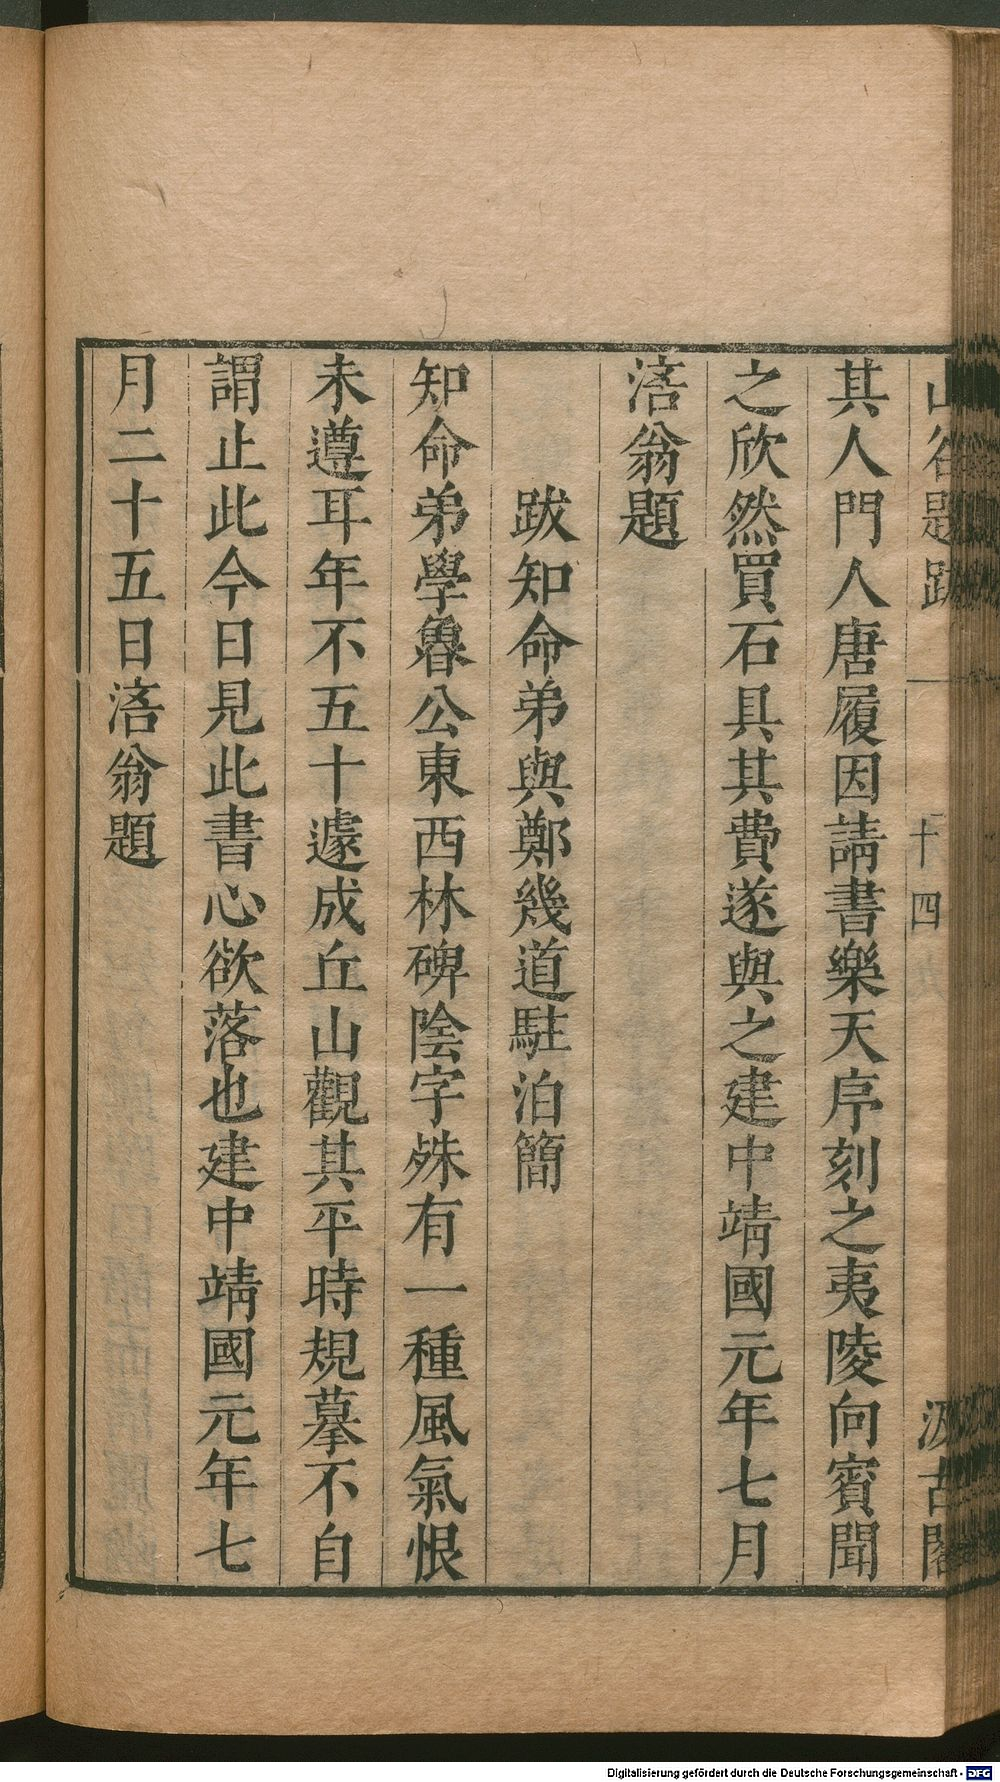 山谷題跋 十四 汲古閣
其人門人唐履因請書樂天序刻之夷陵向賓聞
之欣然買石具其費遂與之建中靖國元年七月
涪翁題
跋知命弟與鄭幾道駐泊簡
知命弟學魯公東西林碑陰字殊有一種風氣恨
未遵耳年不五十遽成丘山觀其平時規摹不自
謂止此今日見此書心欲落也建中靖國元年七
月二十五日涪翁題
Digitalisierung gefördert durch die Deutsche Forschungsgemeinschaft - DFG